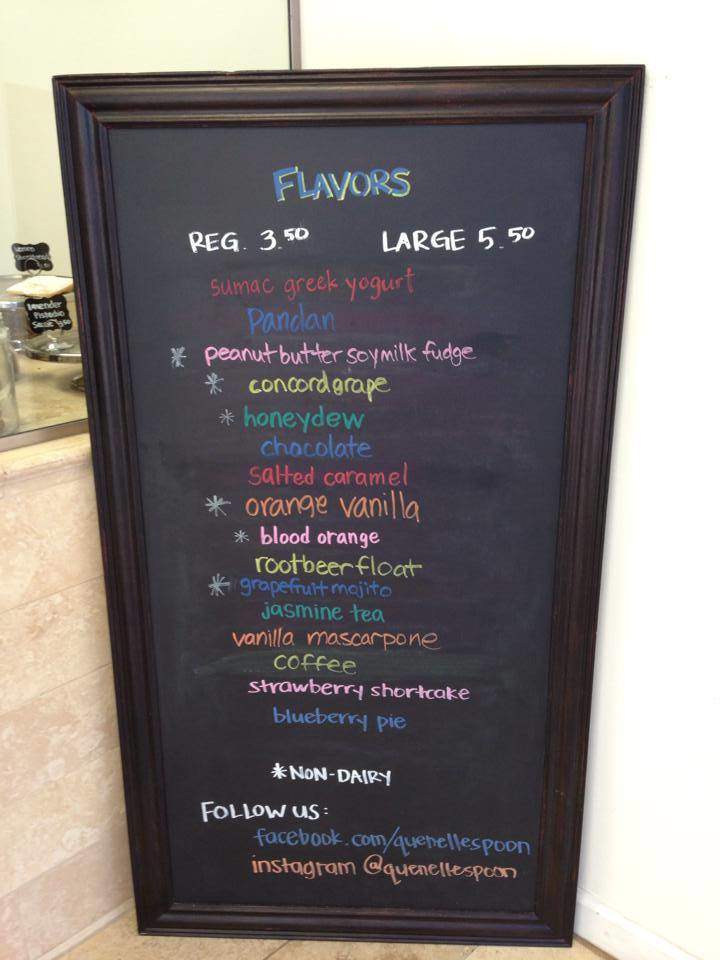 FLAVORS
REG. 3.50 LARGE 5.50
sumac greek yogurt
Pandan
* peanut butter soymilk fudge
* concord grape
* honeydew
chocolate
salted caramel
* orange vanilla
* blood orange
rootbeer float
* grapefruit mojito
jasmine tea
vanilla mascarpone
coffee
strawberry shortcake
blueberry pie
*NON-DAIRY
FOLLOW US:
facebook.com/quenellespoon
instagram @quenellespoon
lavender
Pistachio